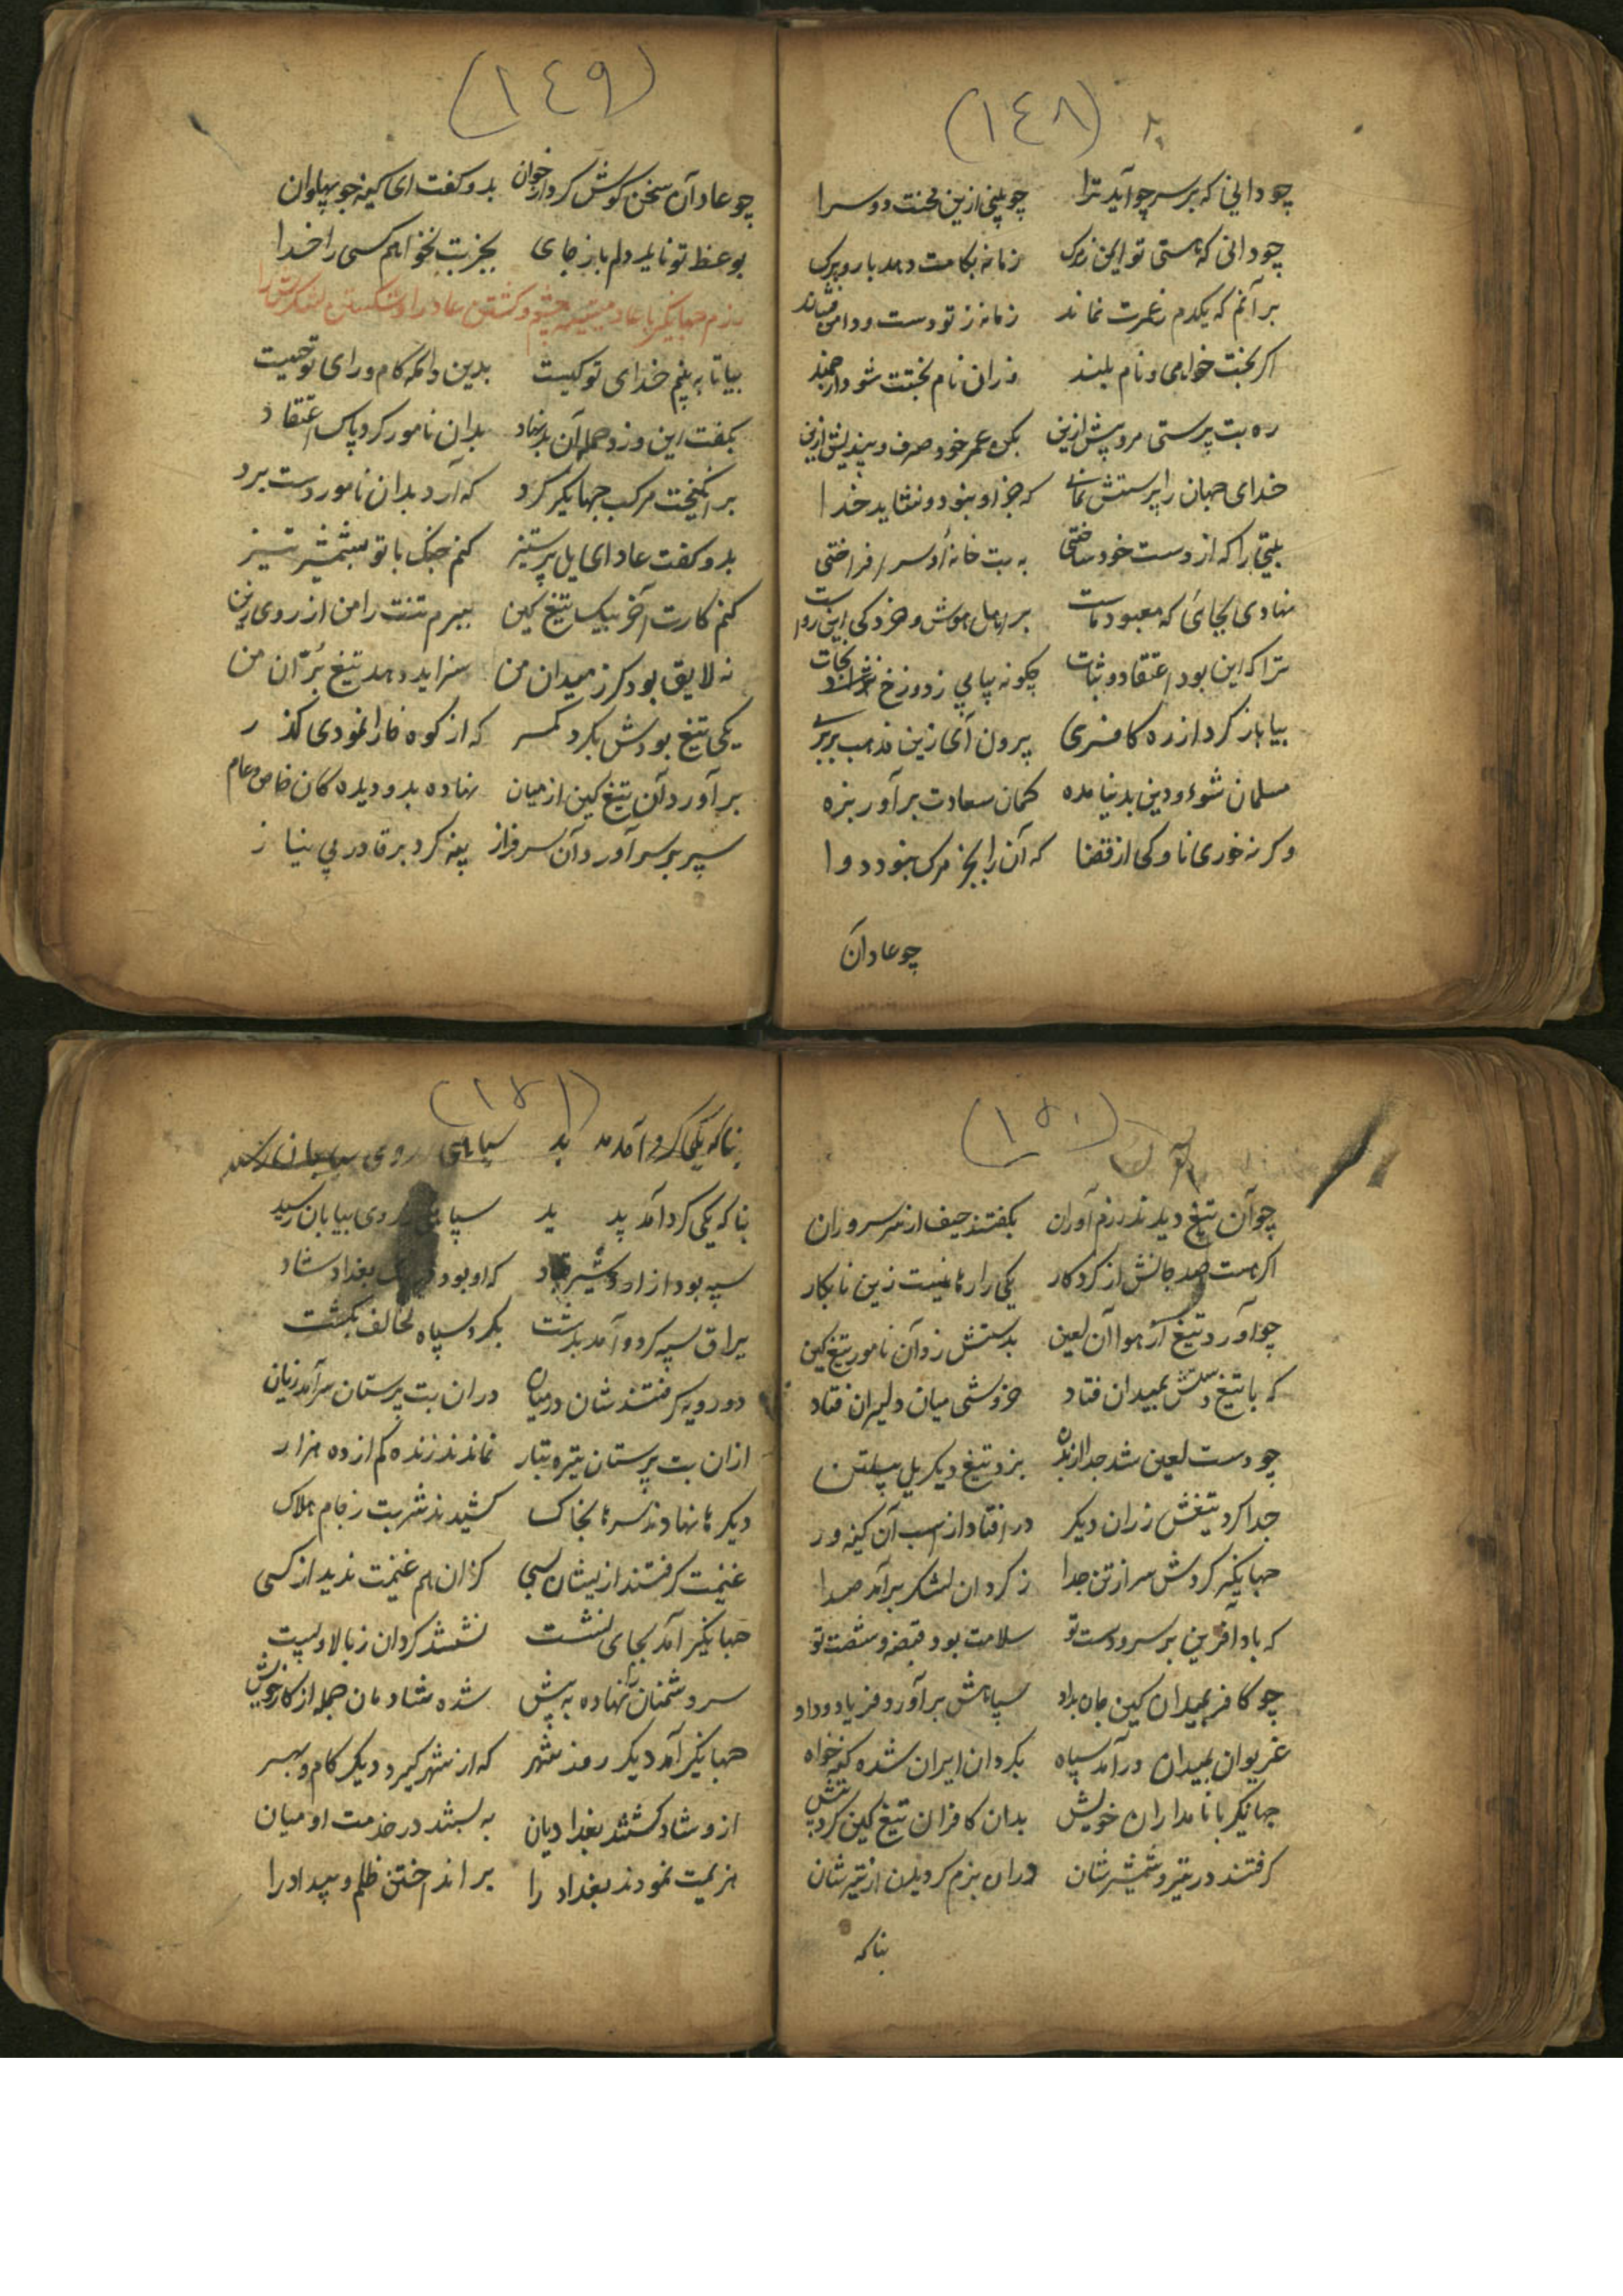 (١٤٨)
چو دانی که بر سر چو آید ترا چو بینی ازین محنت دو سرا
چو دانی که هستی تو ایمن زمرک زمانه بکامت دهد بار و برک
بر آنم که یکدم زعمرت نماند زمانه ز تو دست و دامن فشاند
اکر بخت خواهی و نام بلند وزان نام بختت شود ارجمند
ره بت پرستی مرو پیش ازین بکن عمر خود صرف و بیندیش ازین
خدای جهان را پرستش نمای که جز او نبود و نشاید خدا
بتی را که از دست خود ساختی به بت خانه او سر افراختی
نهادی بجائی که معبود ماست بر اهل هوش و خرد کی این رواست
ترا که این بود اعتقاد و ثبات چکونه بیابی ز دوزخ نجات
بیا باز کرد از ره کافری برون آی زین مذهب بربری
مسلمان شو و دین بدنیا مده کمان سعادت برآور بزه
وکرنه خوری ناوکی از قضا که آن را بجز مرک نبود دوا
چو عاد آن
(١٤٩)
چو عاد آن سخن کوش کرد از جوان بدو کفت ای کینه جو پهلوان
بوعظ تو ناید دلم باز جای بجز بت نخواهم کسی را خدا
رزم جهانکیر با عاد و کشتن عاد را و شکستن لشکرش را
بیا تا به بینم خدای تو کیست بدین دانکه کام و رای تو چیست
بکفت این و زد حمله آن بد نهاد بدان نامور کرد پاس اعتقاد
بر انکیخت مرکب جهانکیر کرد که آرد بدان نامور دست برد
بدو کفت عاد ای یل پر ستیز کنم جنک با تو بشمشیر تیز
کنم کارت آخر بیک تیغ کین ببرم تنت را من از روی زین
نه لایق بود کرز میدان من سزاید دهد تیغ بران من
یکی تیغ بودش بکردِ کمر که از کوه خارا نمودی کذر
برآورد آن تیغ کین از میان نهاده بدو دیده کان خاص و عام
سپر بر سر آورد آن سرفراز پنه کرد بر قادر بی نیاز
(١٥٠)
چو آن تیغ دیدند رزم آوران بکفتند حیف از سر سروران
اکر هست صد جانش از کردکار یکی را رها نیست زین نابکار
چو آورد تیغ از هوا آن لعین بدستش زد آن نامور تیغ کین
که با تیغ دستش بمیدان فتاد خروشی میان دلیران فتاد
چو دست لعین شد جدا از بدن بزد تیغ دیکر یل پیلتن
جدا کرد تیغش ز ران دیکر در افتاد از اسب آن کینه ور
جهانکیر کردش سر از تن جدا ز کردان لشکر برآمد صدا
که باد آفرین بر سر و دست تو سلامت بود قبضه و شصت تو
چو کافر بمیدان کین جان بداد سپاهش برآورد فریاد و داد
غریوان بمیدان درآمد سپاه بکردان ایران شده کینه خواه
جهانکیر با نامداران خویش بدان کافران تیغ کین کرد پیش
کرفتند در تیر و شمشیرشان دران بزم کردیدن از تیرشان
بناکه
(١٥١)
بناکه یکی کرد آمد پدید سپاهی روی بیابان رسید
بناکه یکی کرد آمد پدید سپاهی ز روی بیابان رسید
سپه بود از اردشیر قباد که او بود بغداد شاد
یراق سپه کرد و آمد بدشت بکرد سپاه مخالف بکشت
دو رویه کرفتند شان در میان دران بت پرستان سرآمد زیان
ازان بت پرستان تیره تبار نماندند زنده کم از ده هزار
دیکرها نهادند سرها بخاک کشیدند شربت ز جام هلاک
غنیمت کرفتند ازیشان بسی کزان هم غنیمت ندید از کسی
جهانکیر آمد بجای نشست نشستند کردان ز بالا و پست
سر دشمنان را نهاده به پیش شده شادمان جمله از کار خویش
جهانکیر آمد دیکر روز شهر که از شهر کیرد دیکر کام و بهر
ازو شاد کشتند بغدادیان به بستند در خدمت او میان
هزیمت نمودند بغداد را بر انداختن ظلم و بیداد را